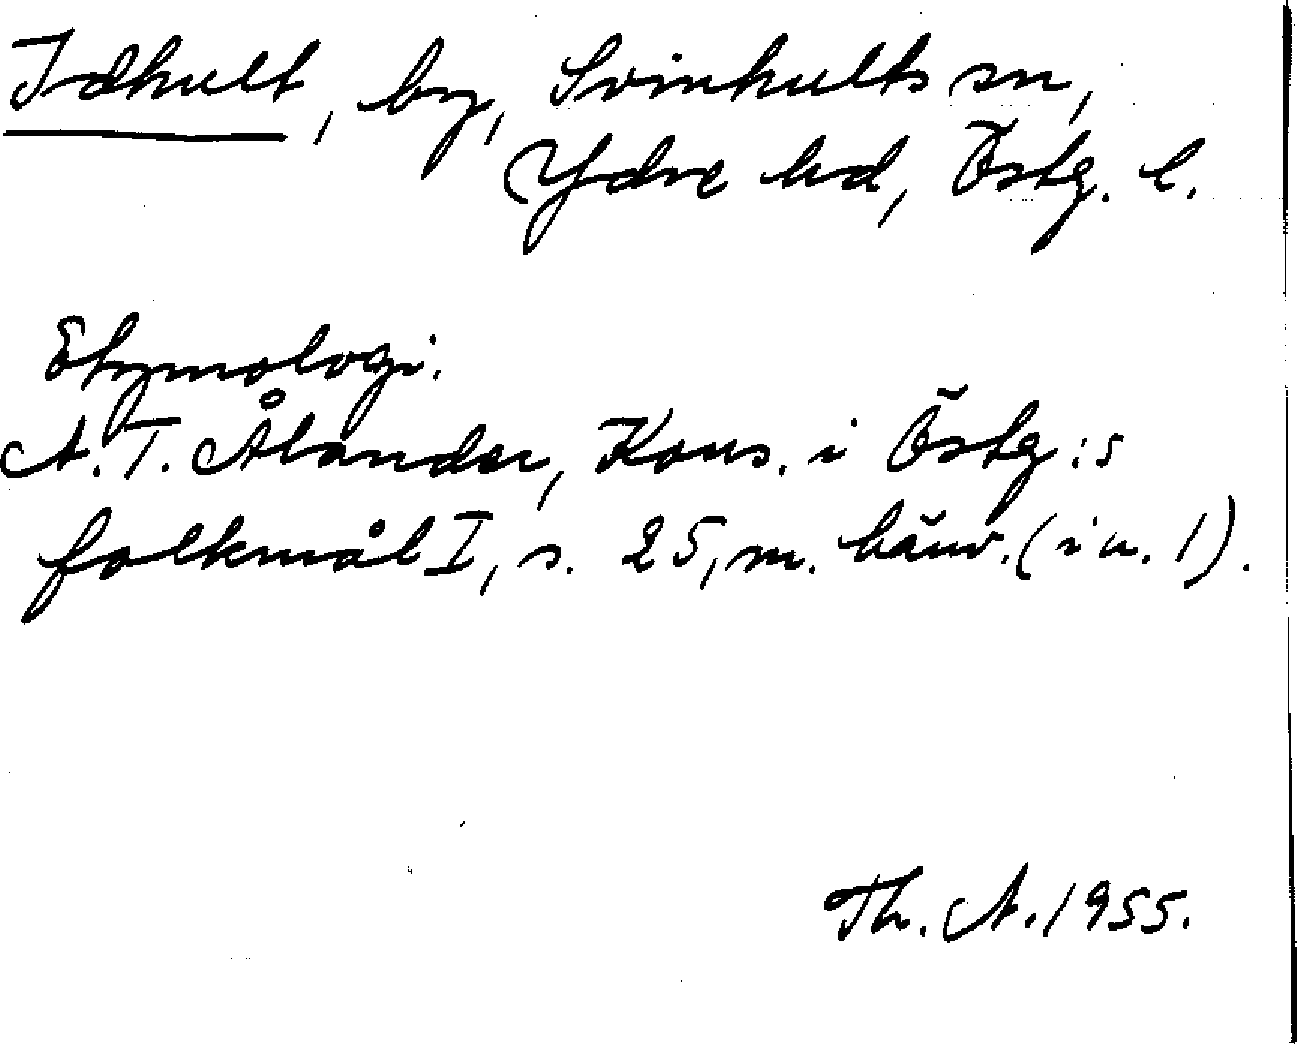 Idhult, by, Svinhults sn,
Ydre hd, Östg. l.
Etymologi.
A. T. Ålander, Kons. i Östg:s
folkmål I, s. 25, m. hänv. (i n. 1).
Th. A. 1955.